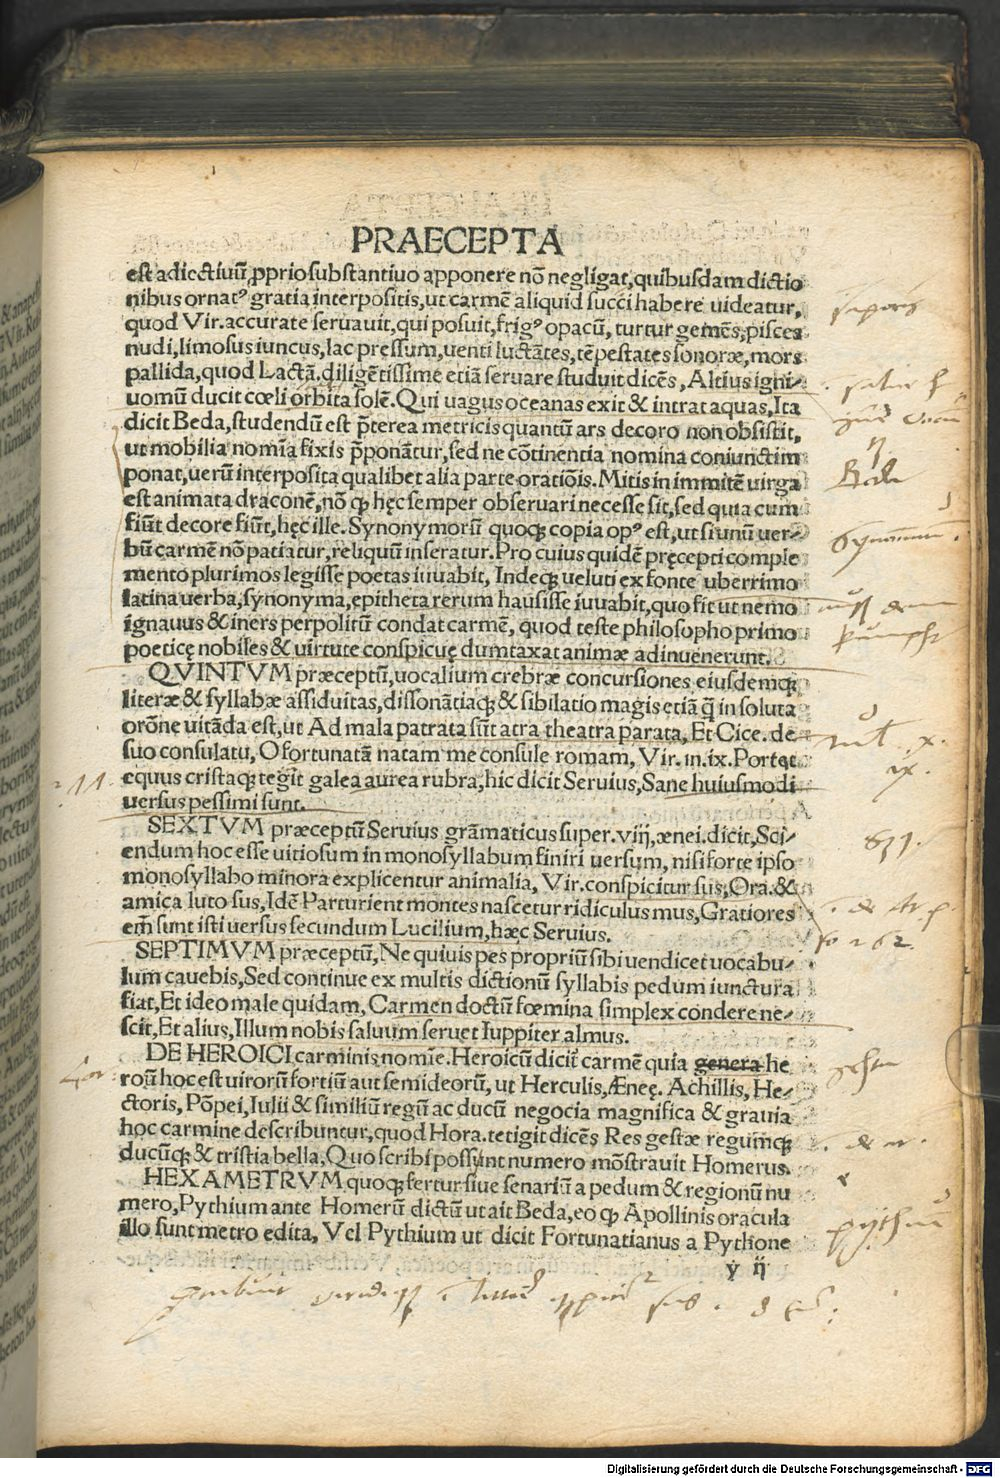 PRAECEPTA
est adiectiuũ, ꝓprio substantiuo apponere nõ negligat, quibusdam dictio
nibus ornatꝰ gratia interpositis, ut carmẽ aliquid succi habere uideatur,
quod Vir. accurate seruauit, qui posuit, frigꝰ opacũ, turtur gemẽs, pisces
nudi, limosus iuncus, lac pressum, uenti luctãtes, tẽpestates sonoræ, mors
pallida, quod Lactã. diligẽtissime etiã seruare studuit dicẽs, Altius igni⸗
uomũ ducit cœli orbita solẽ. Qui uagus oceanas exit & intrat aquas, Ita
dicit Beda, studendũ est p̃terea metricis quantũ ars decoro non obsistit,
ut mobilia nomĩa fixis p̃ponãtur, sed ne cõtinentia nomina coniunctim
ponat, uerũ interposita qualibet alia parte oratiõis. Mitis in immitẽ uirga
est animata draconẽ, nõ ꝙ hęc semper obseruari necesse sit, sed quia cum
fiũt decore fiũt, hęc ille. Synonymorũ quoqꝫ copia opꝰ est, ut si unũ uer⸗
bũ carmẽ nõ patiatur, reliquũ inseratur. Pro cuius quidẽ pręcepti comple
mento plurimos legisse poetas iuuabit, Indeqꝫ ueluti ex fonte uberrimo
latina uerba, synonyma, epitheta rerum hausisse iuuabit, quo fit ut nemo
ignauus & iners perpolitũ condat carmẽ, quod teste philosopho primo
poeticę nobiles & uirtute conspicuę dumtaxat animæ adinuenerunt.
QVINTVM præceptũ, uocalium crebræ concursiones eiusdemqꝫ
literæ & syllabæ assiduitas, dissonãtiaqꝫ & sibilatio magis etiã q̃ in soluta
orõne uitãda est, ut Ad mala patrata sũt atra theatra parata, Et Cice. de
suo consulatu, O fortunatã natam me consule romam, Vir. in. ix. Portat
equus cristaqꝫ tegit galea aurea rubra, hic dicit Seruius, Sane huiusmodi
uersus pessimi sunt.
SEXTVM præceptũ Seruius grãmaticus super. viij, ænei. dicit, Sci⸗
endum hoc esse uitiosum in monosyllabum finiri uersum, nisi forte ipso
monosyllabo minora explicentur animalia, Vir. conspicitur sus, Ora. &
amica luto sus, Idẽ Parturient montes nascetur ridiculus mus, Gratiores
em̃ sunt isti uersus secundum Lucilium, hæc Seruius.
SEPTIMVM præceptũ, Ne quiuis pes propriũ sibi uendicet uocabu⸗
lum cauebis, Sed continue ex multis dictionũ syllabis pedum iunctura
fiat, Et ideo male quidam, Carmen doctũ fœmina simplex condere ne⸗
scit, Et alius, Illum nobis saluum seruet Iuppiter almus.
DE HEROICI carminis nomĩe. Heroicũ dicit̃ carmẽ quia genera he
roũ hoc est uirorũ fortiũ aut semideorũ, ut Herculis, Æneę. Achillis, He⸗
ctoris, Põpei, Iulii & similiũ regũ ac ducũ negocia magnifica & grauia
hoc carmine describuntur, quod Hora. tetigit dicẽs Res gestæ regumqꝫ
ducũqꝫ & tristia bella, Quo scribi possint numero mõstrauit Homerus.
HEXAMETRVM quoqꝫ fertur siue senariũ a pedum & regionũ nu
mero, Pythium ante Homerũ dictũ ut ait Beda, eo ꝙ Apollinis oracula
illo sunt metro edita, Vel Pythium ut dicit Fortunatianus a Pythone
y ij
Beda
ix.
Digitalisierung gefördert durch die Deutsche Forschungsgemeinschaft - DFG